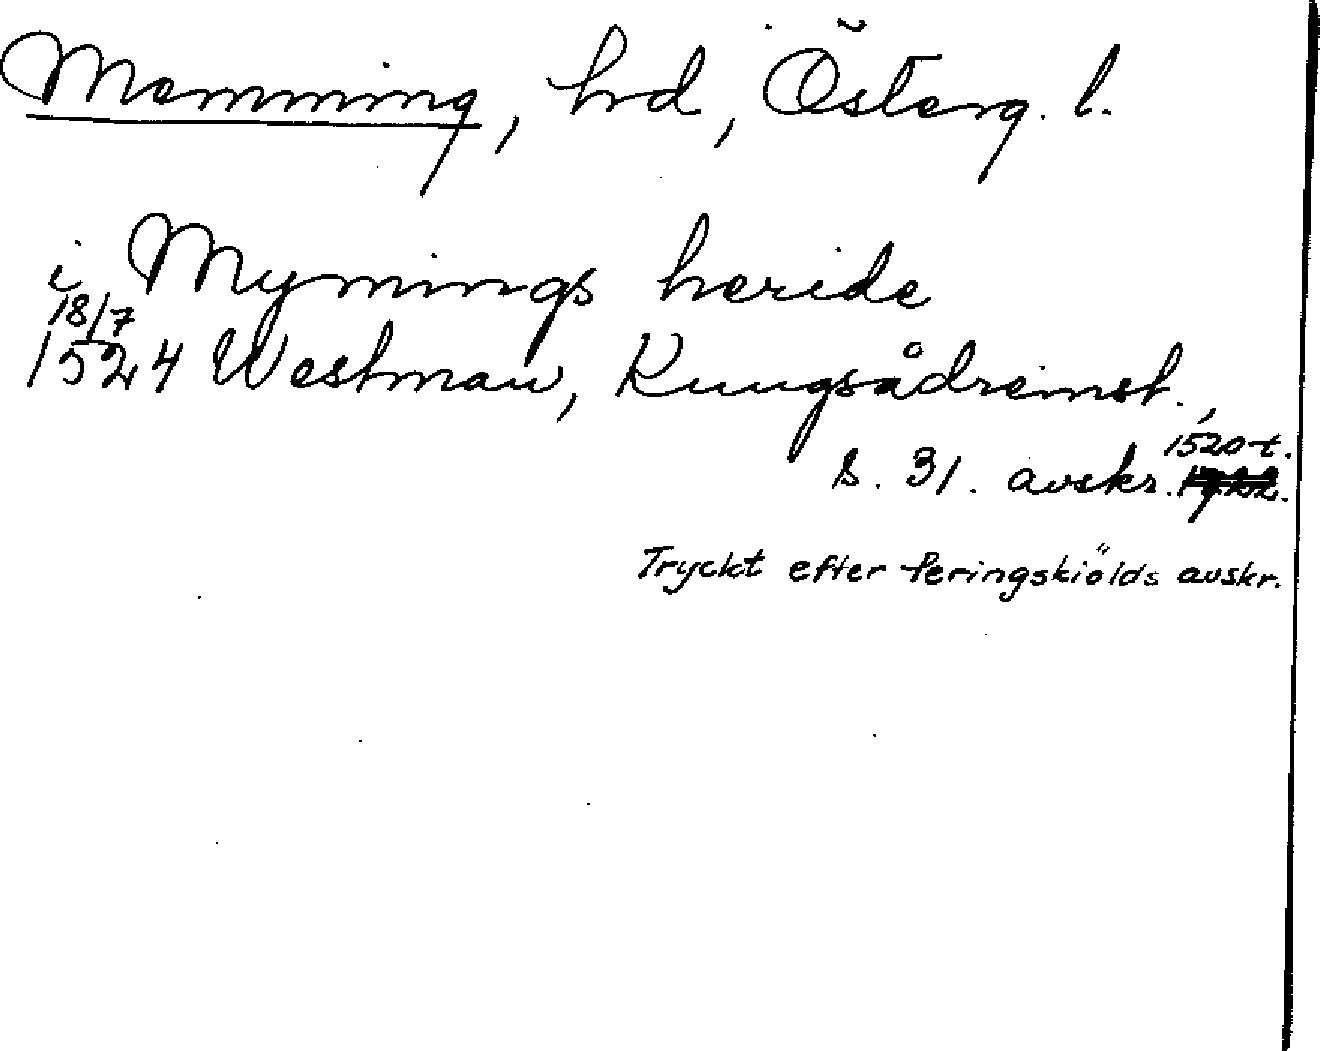 Memming, hd, Österg. l.
i Mymings heride
18/7
1524 Westman, Kungsådreinst.,
s. 31. avskr. 1520-t.
Tryckt efter Peringskiölds avskr.